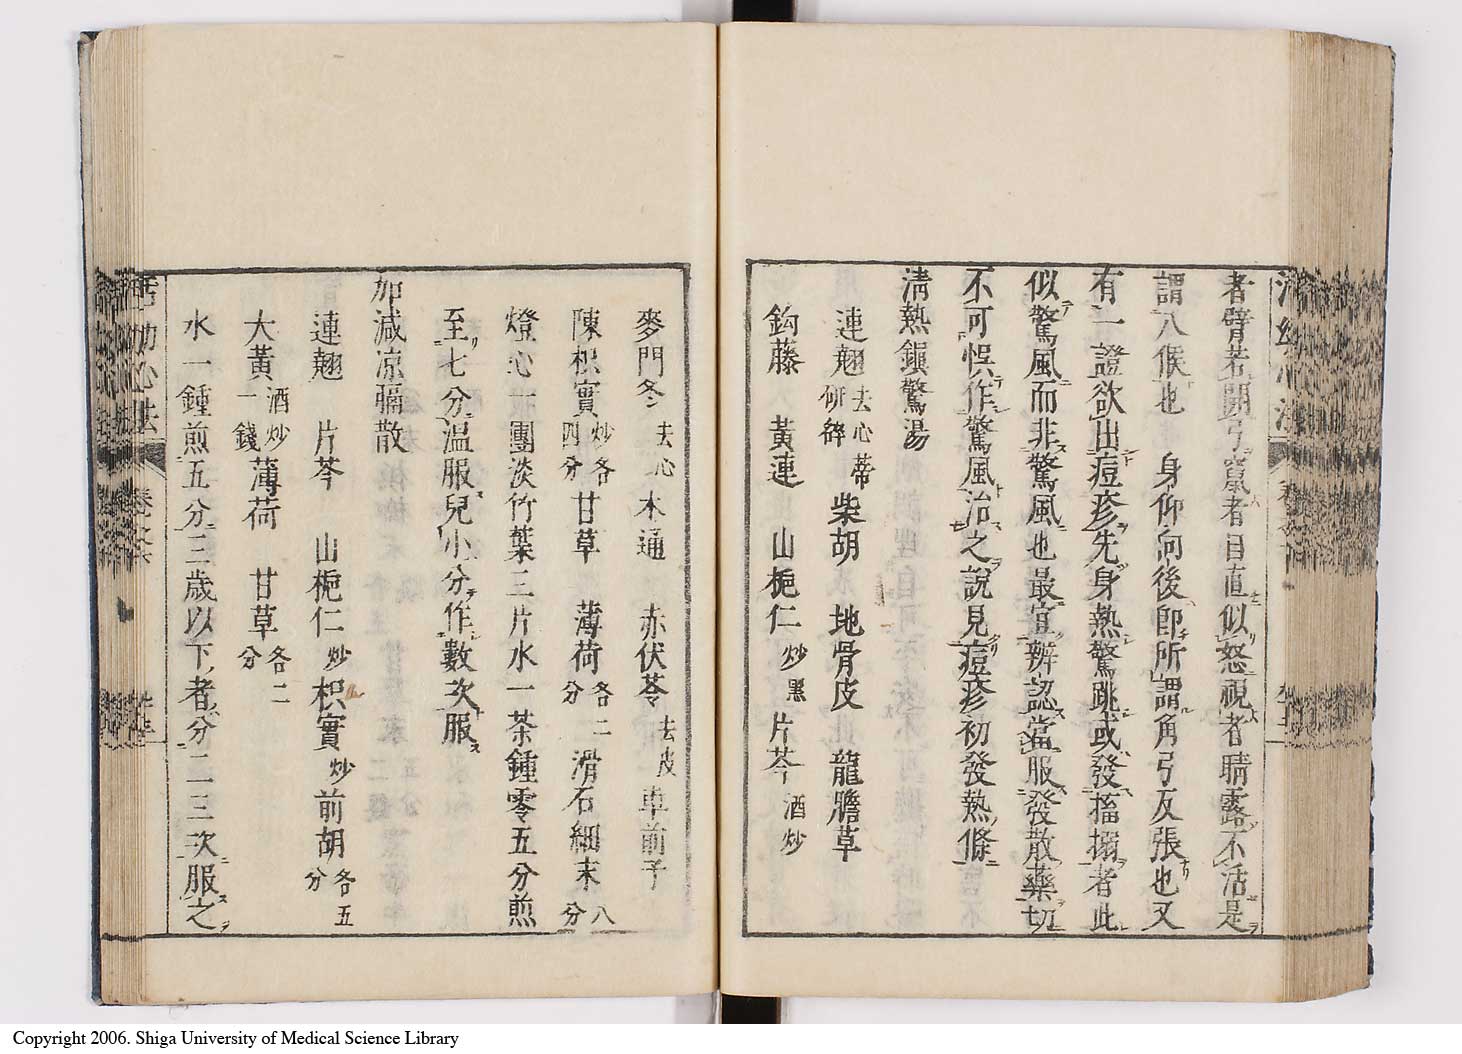 者臂若開弓竄者目直似怒視者睛露不活是
謂八候也 身仰向後即所謂角弓反張也又
有一證欲出痘疹先身熱驚跳或發搐搦者此
似驚風而非驚風也最宜辨認當服發散藥切
不可悞作驚風治之說見痘疹初發熱條
清熱鎮驚湯
連翹 去心蒂研碎 柴胡 地骨皮 龍膽草
鈎藤 黃連 山梔仁 炒黑 片芩 酒炒
麥門冬 去心 木通 赤伏苓 去皮 車前子
陳枳實 炒各四分 甘草 薄荷 各二分 滑石細末 八分
燈心一團淡竹葉三片水一茶鍾零五分煎
至七分溫服兒小分作數次服
加減凉膈散
連翹 片芩 山梔仁 炒 枳實 炒 前胡 各五分
大黃 酒炒一錢 薄荷 甘草 各二分
水一鍾煎五分三歲以下者分二三次服之
活幼心法
Copyright 2006. Shiga University of Medical Science Library